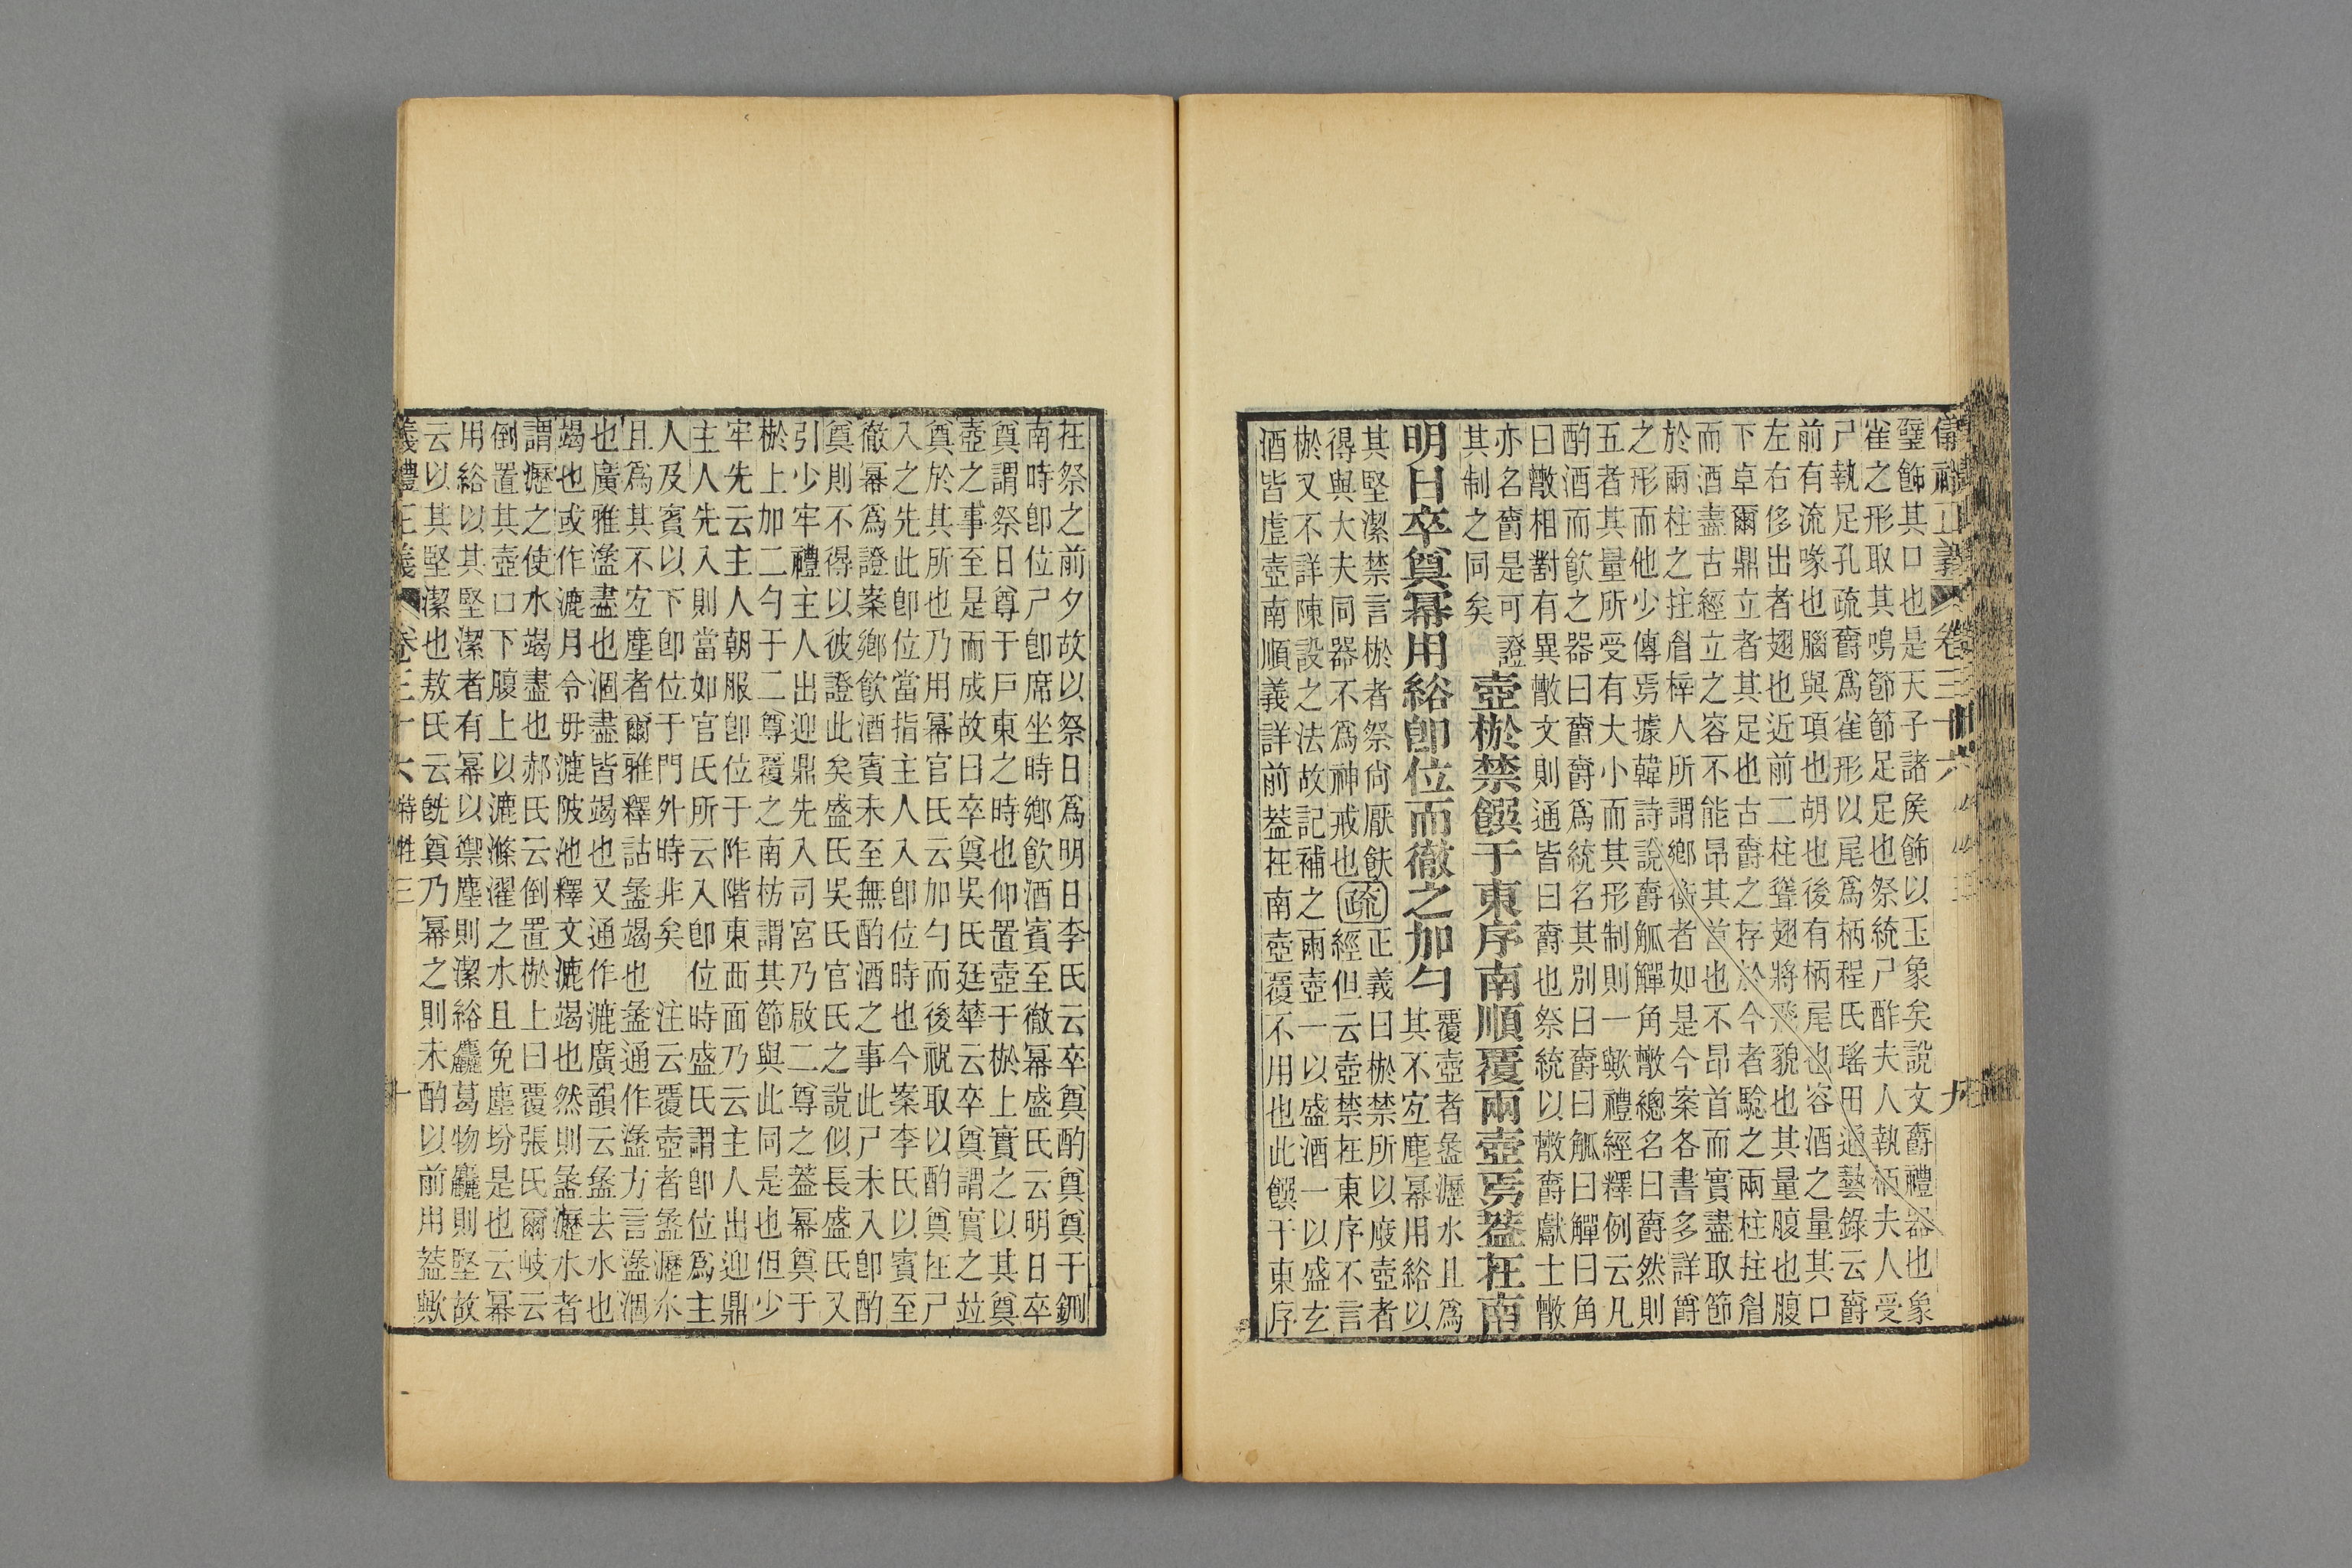 儀禮正義 卷三十六 九
璧飾其口也是天子諸矦飾以玉象矣說文爵禮器也象
雀之形取其鳴節節足足也祭統尸酢夫人執柄夫人受
尸執足孔疏爵爲雀形以尾爲柄程氏瑤田通藝錄云爵
前有流喙也腦與項也胡也後有柄尾也容酒之量其口
左右侈出者翅也近前二柱聳翅將飛貌也其量腹也腹
下卓爾鼎立者其足也古爵之存於今者驗之兩柱拄眉
而酒盡古經立之容不能昂其首也不昂首而實盡取節
於兩柱之拄眉梓人所謂鄉衡者如是今案各書多詳爵
之形而他少傳焉據韓詩說爵觚觶角散總名曰爵然則
五者其量所受有大小而其形制則一歟禮經釋例云凡
酌酒而飮之器曰爵爵爲統名其別曰爵曰觚曰觶曰角
曰散相對有異散文則通皆曰爵也祭統以散爵獻士散
亦名爵是可證
其制之同矣
壺棜禁饌于東序南順覆兩壺焉葢在南
明日卒奠冪用綌卽位而徹之加勺
覆壺者盝瀝水且爲
其不宐塵冪用綌以
其堅潔禁言棜者祭尙厭飫
得與大夫同器不爲神戒也
疏
正義曰棜禁所以庪壺者
經但云壺禁在東序不言
棜又不詳陳設之法故記補之兩壺一以盛酒一以盛玄
酒皆虛壺南順義詳前葢在南壺覆不用也此饌于東序
在祭之前夕故以祭日爲明日李氏云卒奠酌奠奠于鉶
南時卽位尸卽席坐時鄉飮酒賓至徹冪盛氏云明日卒
奠謂祭日尊于戶東之時也仰置壺于棜上實之以其奠
壺之事至是而成故曰卒奠吳氏廷華云卒奠謂實之竝
奠於其所也乃用冪官氏云加勺而後祝取以酌奠在尸
入之先此卽位當指主人入卽位時也今案李氏以賓至
徹冪爲證案鄉飮酒賓未至無酌酒之事此尸未入卽酌
奠則不得以彼證此矣盛氏吳氏官氏之說似長盛氏又
引少牢禮主人出迎鼎先入司宮乃啟二尊之葢冪奠于
棜上加二勺于二尊覆之南枋謂其節與此同是也但少
牢先云主人朝服卽位于阼階東西面乃云主人出迎鼎
主人先入則當如官氏所云入卽位時盛氏謂卽位爲主
人及賓以下卽位于門外時非矣 注云覆壺者盝瀝水
且爲其不宐塵者爾雅釋詁盝竭也 盝通作盪方言盪涸
也廣雅盪盡也涸盡皆竭也又通作漉廣韻云盝去水也
竭也或作漉月令毋漉陂池釋文漉竭也然則盝瀝水者
謂瀝之使水竭盡也郝氏云倒置棜上曰覆張氏爾岐云
倒置其壺口下腹上以漉滌濯之水且免塵坋是也云冪
用綌以其堅潔者有冪以禦塵則潔綌麤葛物麤則堅故
云以其堅潔也敖氏云旣奠乃冪之則未酌以前用葢歟
儀禮正義 卷三十六 特牲三 十